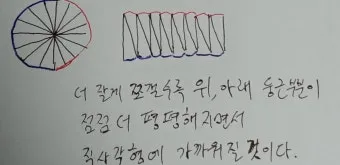 더 잘게 쪼갤수록 위, 아래 둥근부분이
점점 더 평평해지면서
직사각형에 가까워질 것이다.